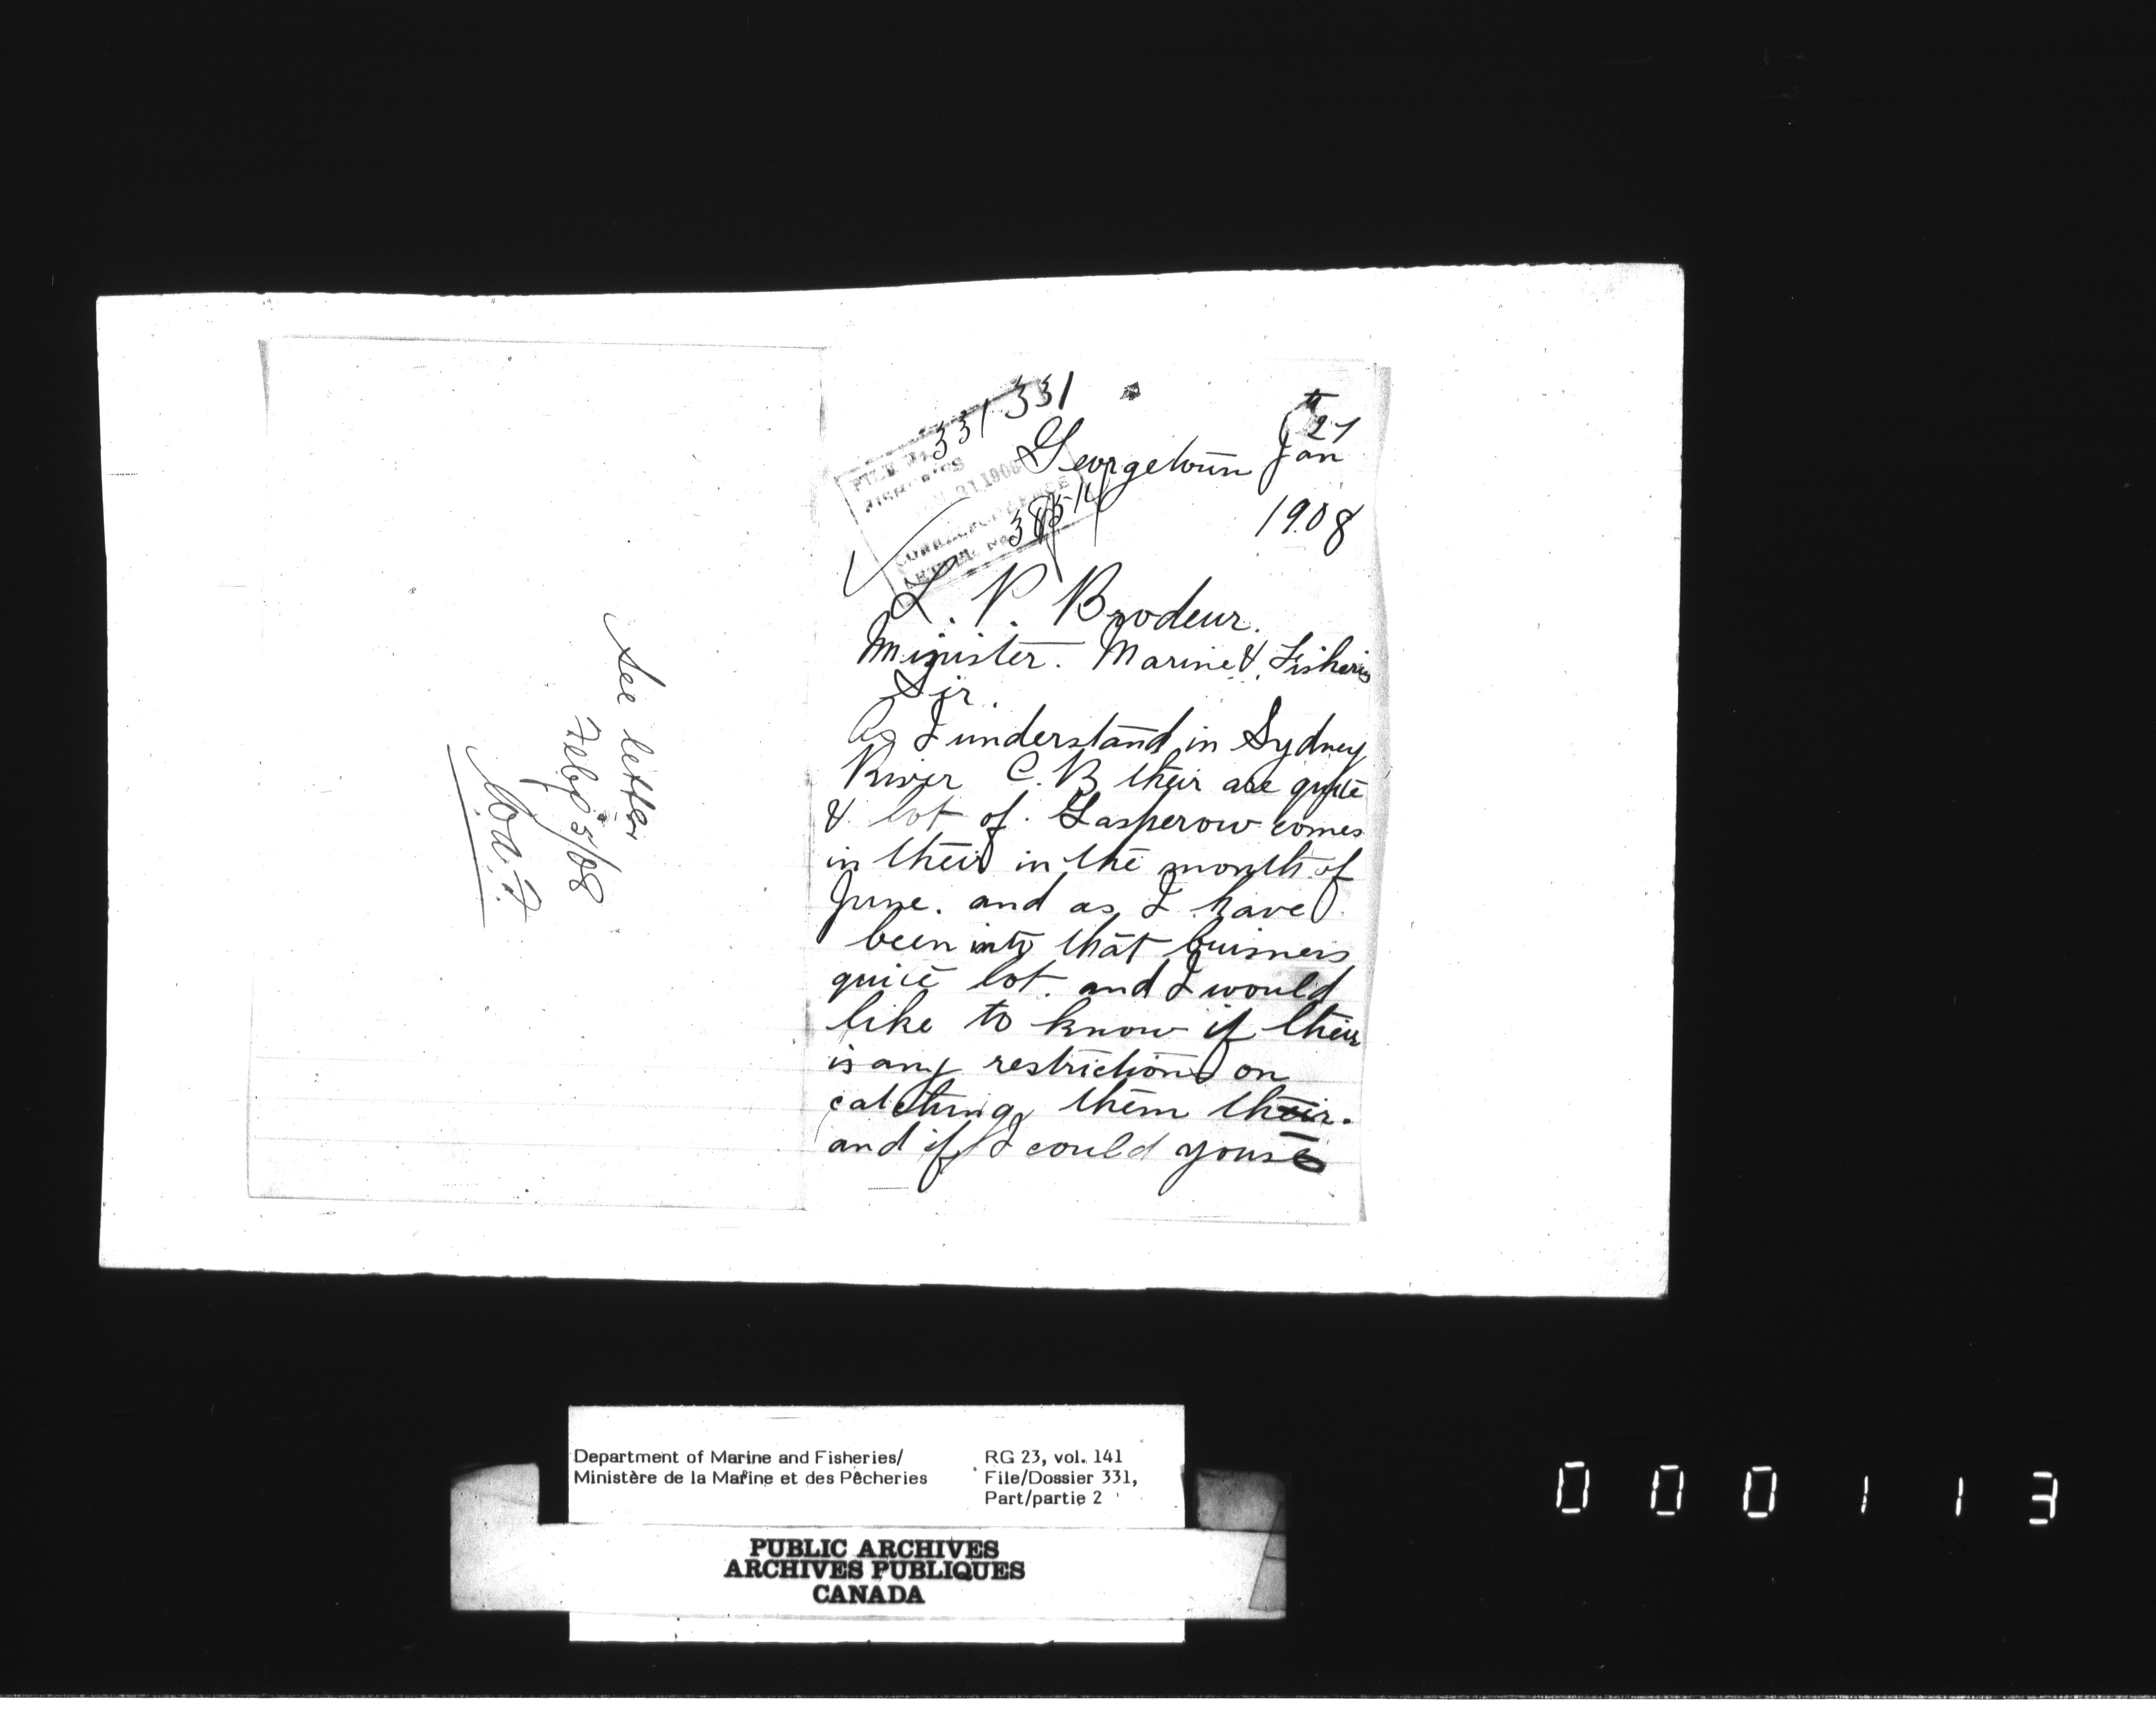 See letter
Feby 5/08
331
331
FILE No.
FISHERIES
CORRESPONDENCE
LETTER No.
Georgetown Jan 27th
1908
L. P. Brodeur.
Minister. Marine & Fisheries
Sir.
As I understand in Sydney
River C. B their are quite
& lot of. Gasperow comes
in their in the month of
June. and as I have
been into that buisness
quite lot. and I would
like to know if their
is any restrictions on
catching them their.
and if I could youse
Department of Marine and Fisheries/
Ministère de la Marine et des Pêcheries
RG 23, vol. 141
File/Dossier 331,
Part/partie 2
PUBLIC ARCHIVES
ARCHIVES PUBLIQUES
CANADA
000113